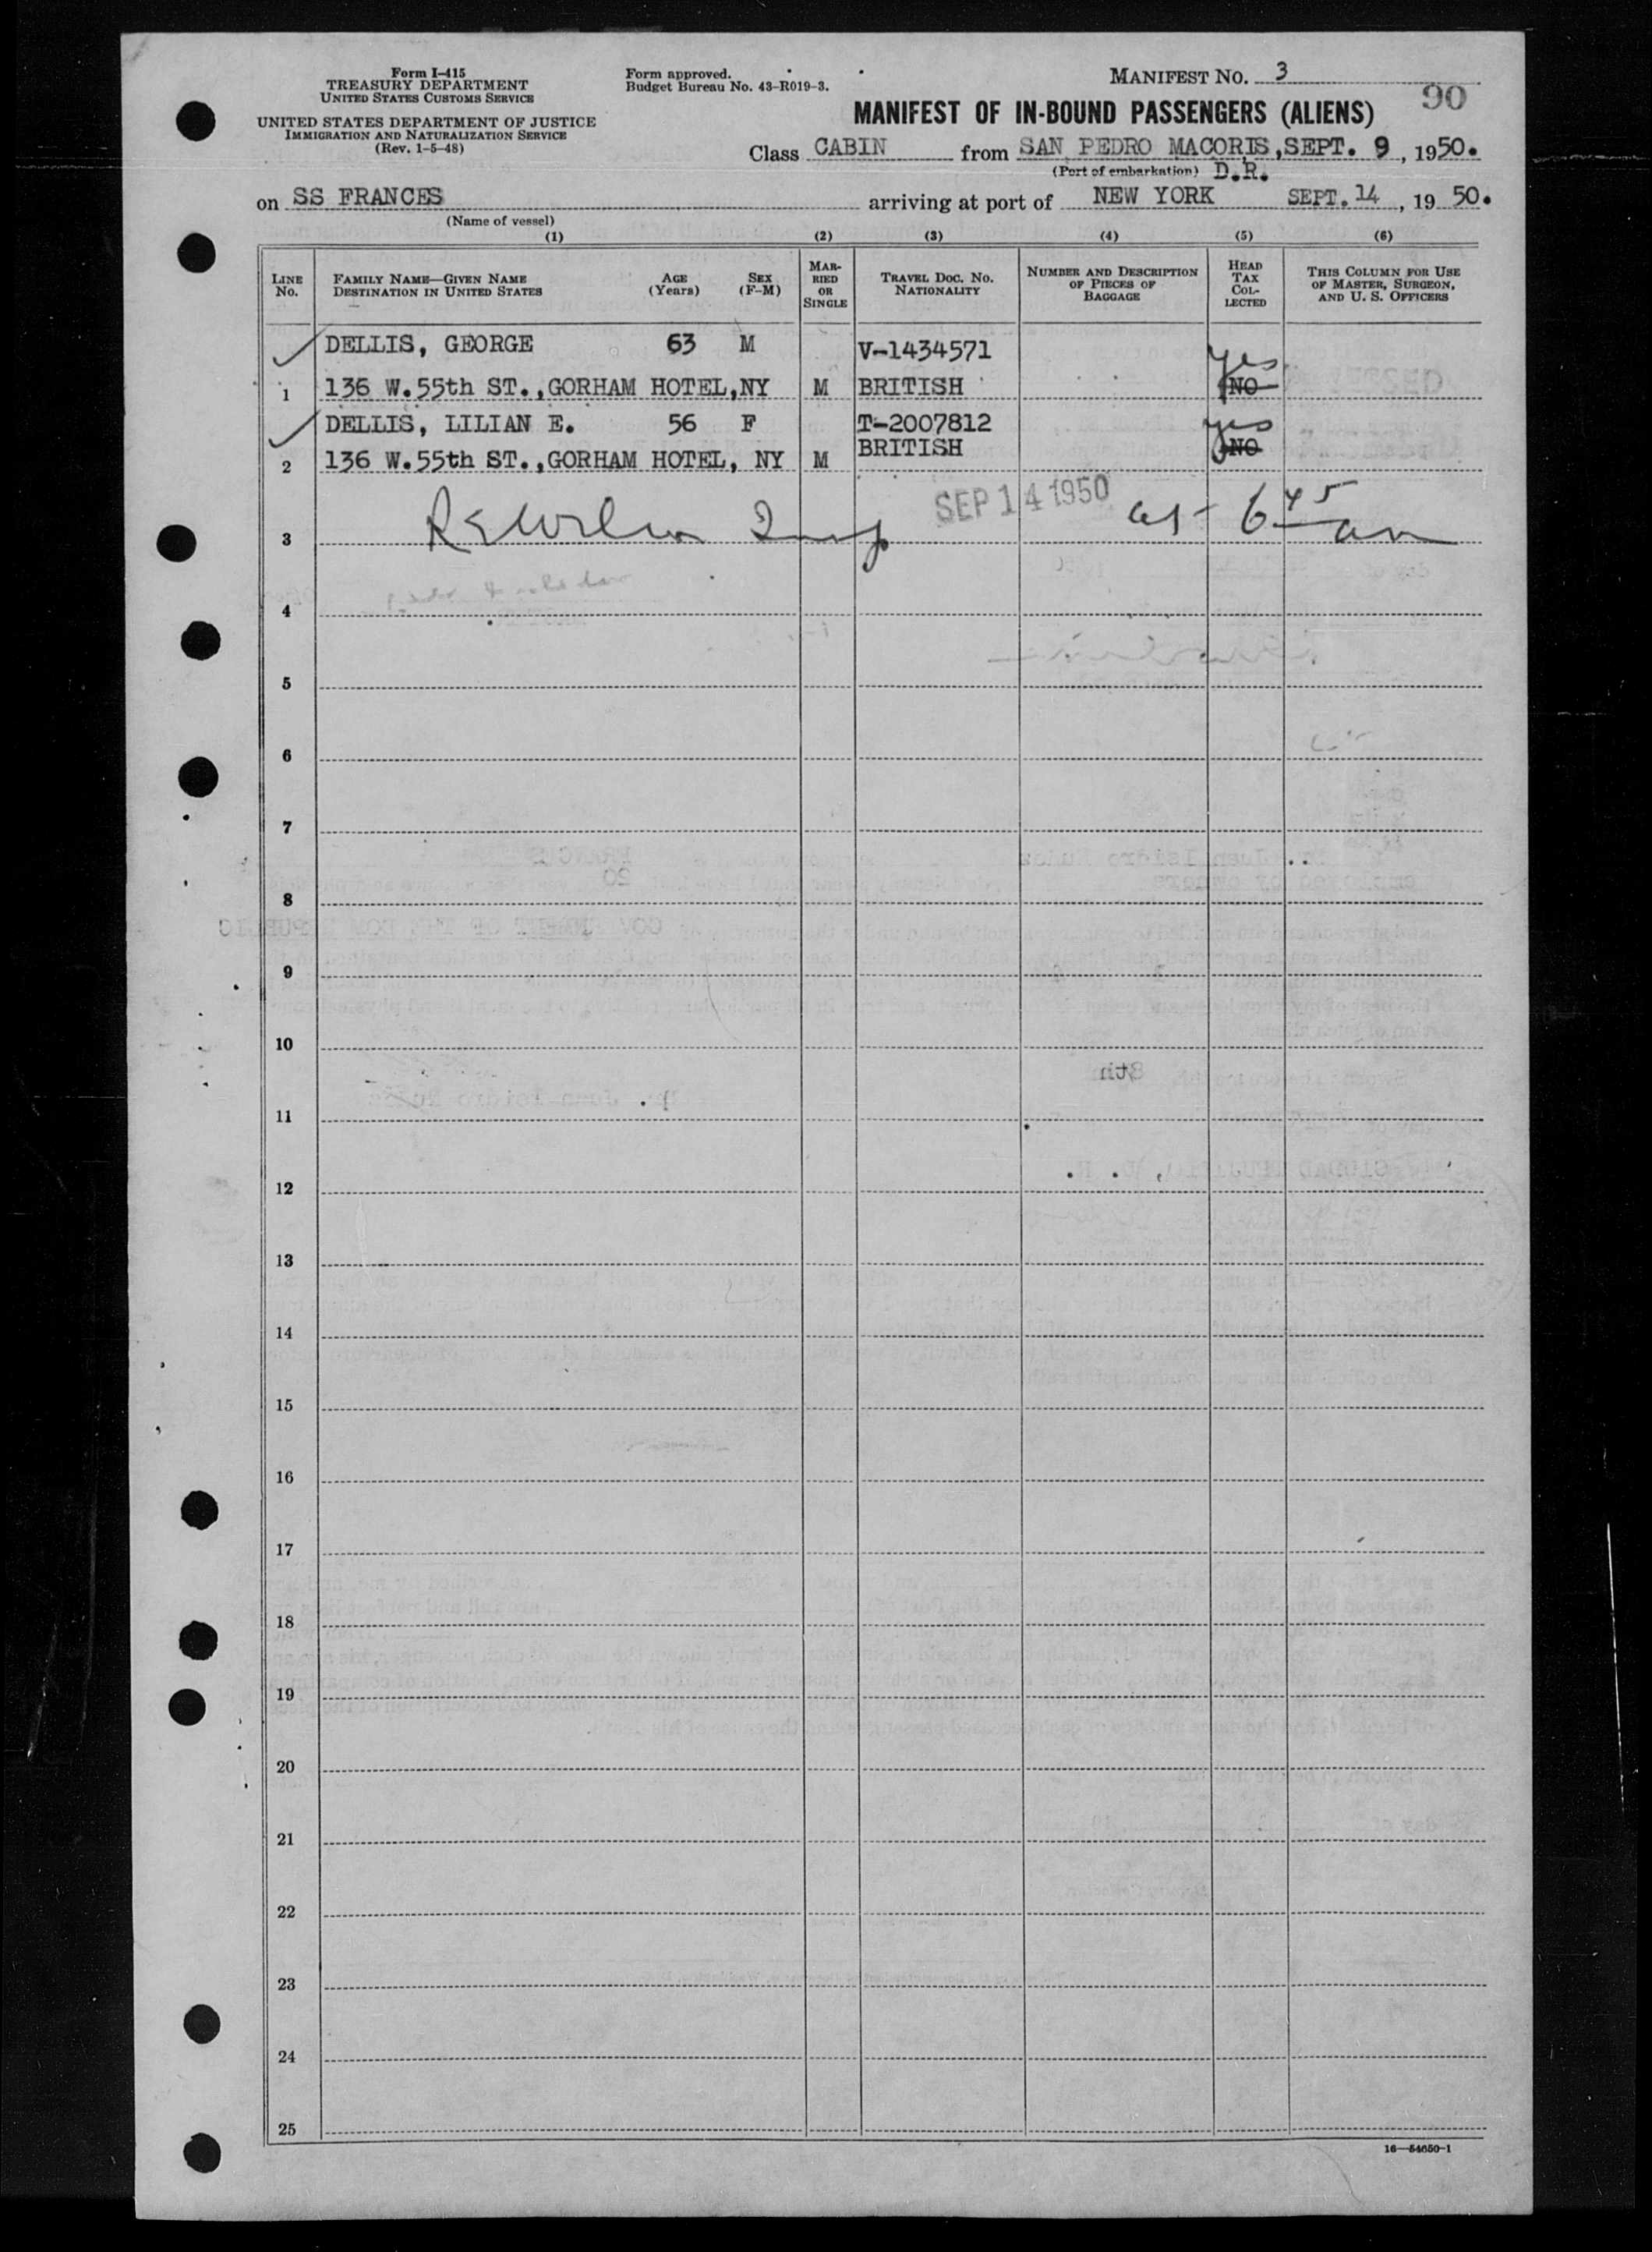 Form I-415
TREASURY DEPARTMENT
UNITED STATES CUSTOMS SERVICE
UNITED STATES DEPARTMENT OF JUSTICE
IMMIGRATION AND NATURALIZATION SERVICE
(Rev. 1-5-48)
Form approved.
Budget Bureau No. 43-R019-3.
MANIFEST NO. 3
90
MANIFEST OF IN-BOUND PASSENGERS (ALIENS)
Class CABIN from SAN PEDRO MACORIS, SEPT. 9, 1950.
(Port of embarkation) D.R.
on SS FRANCES arriving at port of NEW YORK SEPT. 14, 19 50.
(Name of vessel)
(1) (2) (3) (4) (5) (6)
LINE No.
FAMILY NAME—GIVEN NAME
DESTINATION IN UNITED STATES
AGE (Years)
SEX (F-M)
MARRIED OR SINGLE
TRAVEL DOC. NO.
NATIONALITY
NUMBER AND DESCRIPTION OF PIECES OF BAGGAGE
HEAD TAX COLLECTED
THIS COLUMN FOR USE OF MASTER, SURGEON, AND U. S. OFFICERS
DELLIS, GEORGE 63 M V-1434571 yes
1 136 W.55th ST.,GORHAM HOTEL,NY M BRITISH NO
DELLIS, LILIAN E. 56 F T-2007812 yes
2 136 W.55th ST.,GORHAM HOTEL, NY M BRITISH NO
SEP 14 1950 at 6 45 am
3
4
5
6
7
8
9
10
11
12
13
14
15
16
17
18
19
20
21
22
23
24
25
16—54650-1